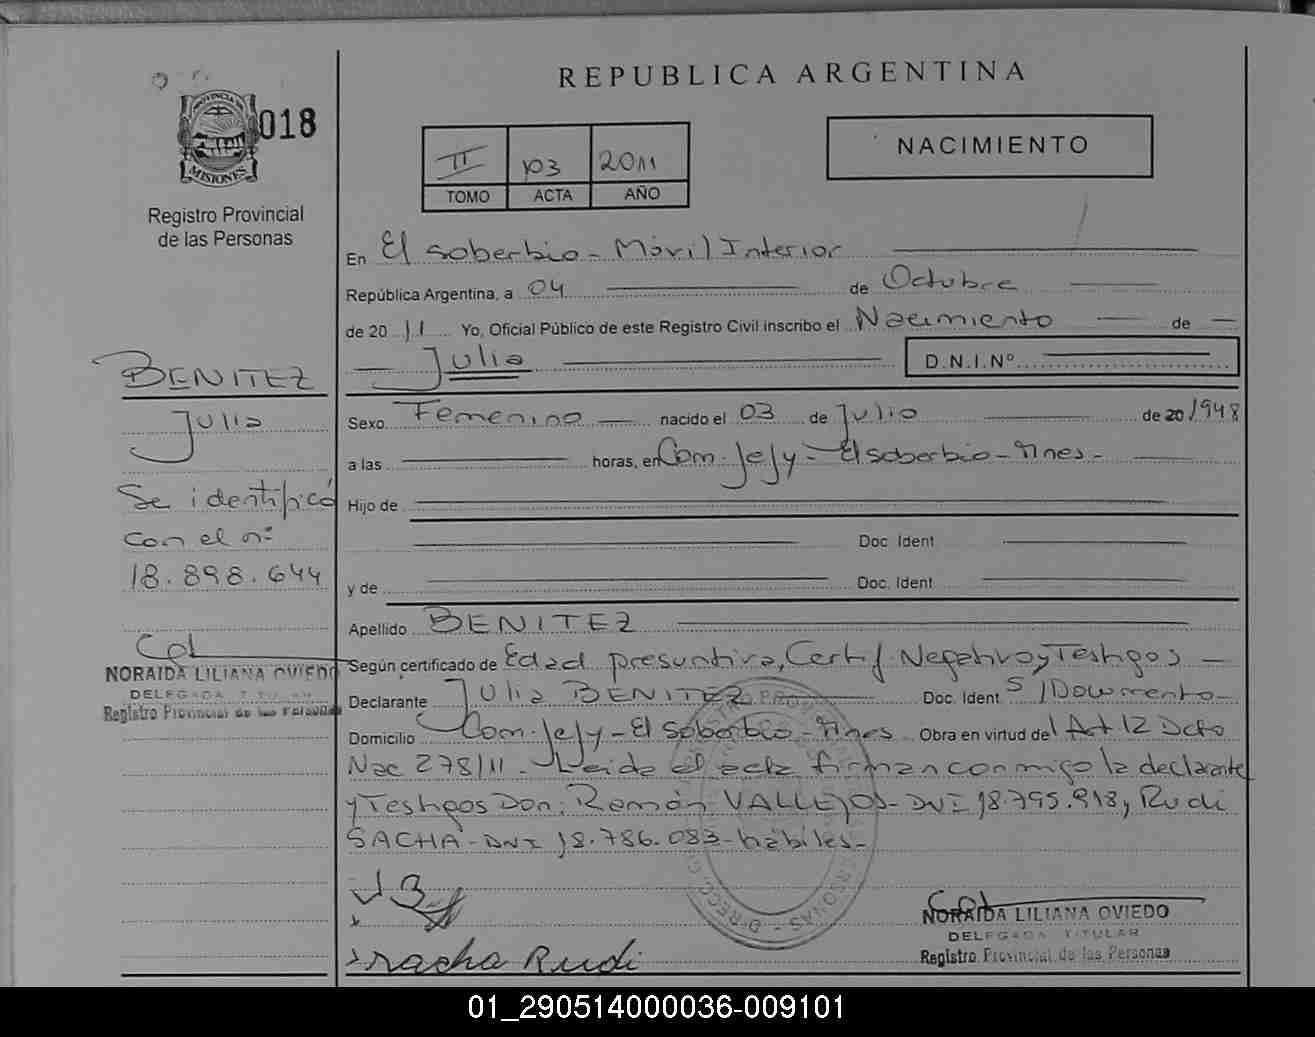 REPUBLICA ARGENTINA
PROVINCIA DE
MISIONES
018
Registro Provincial
de las Personas
II 103 2011
TOMO ACTA AÑO
NACIMIENTO
En El soberbio - Móvil Interior
República Argentina, a 04 de Octubre
de 20 11 Yo, Oficial Público de este Registro Civil inscribo el Nacimiento de
Julia D.N.I.Nº
BENITEZ
Julia
Se identificó
con el nº
18.898.644
NORAIDA LILIANA OVIEDO
DELEGADA TITULAR
Registro Provincial de las Personas
Sexo Femenino nacido el 03 de Julio de 20 1948
a las horas, en Com. Jejy - El soberbio - Mnes -
Hijo de
Doc. Ident
y de Doc. Ident.
Apellido BENITEZ
Según certificado de Edad presuntiva, Cert/ Negativo y Testigos
Declarante Julia BENITEZ Doc. Ident S/Documento
Domicilio Com. Jejy - El soberbio - Mnes Obra en virtud del Art 12 Dcto
Nac 278/11 - Leida el acta firman conmigo la declarante
y Testigos Don: Román VALLEJOS - DNI 18.795.918, Rudi
SACHA - DNI 18.786.083 - hábiles -
racha Rudi
NORAIDA LILIANA OVIEDO
DELEGADA TITULAR
Registro Provincial de las Personas
01_290514000036-009101